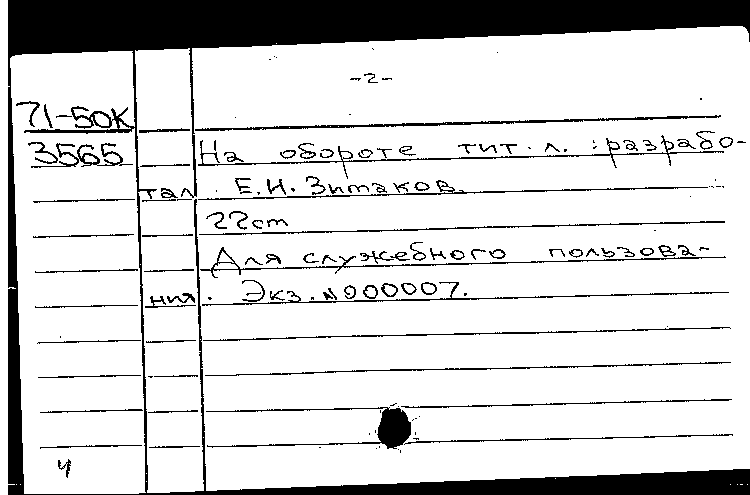 -2-
71-50К
3565
На обороте тит. л. : разрабо-
тал. Е.И. Зитаков.
22cm
Для служебного пользова-
ния. Экз. №000007.
ч